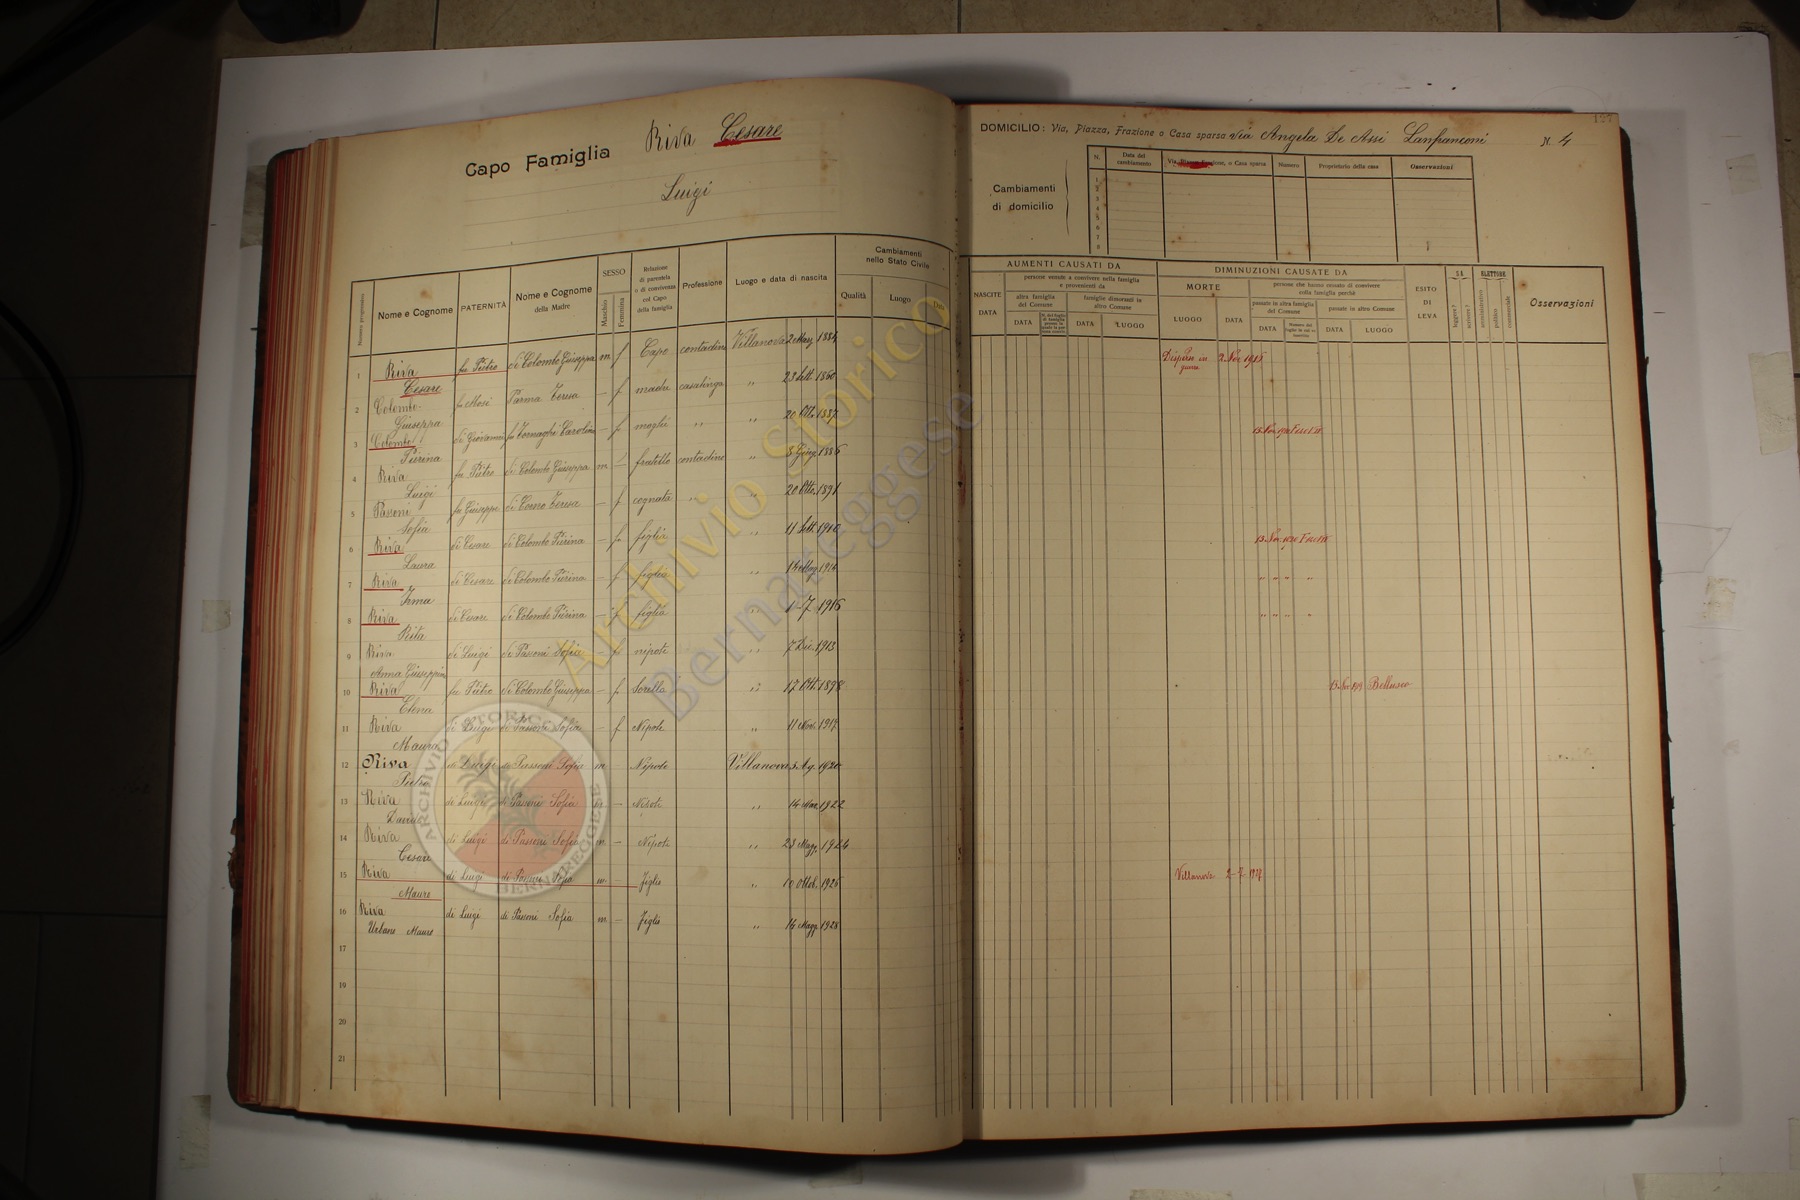 Capo Famiglia Riva Cesare
Luigi
Numero progressivo
Nome e Cognome
PATERNITÀ
Nome e Cognome della Madre
SESSO
Maschio
Femmina
Relazione di parentela o di convivenza col Capo della famiglia
Professione
Luogo e data di nascita
Cambiamenti nello Stato Civile
Qualità
Luogo
Data
1 Riva Cesare fu Pietro di Colombo Giuseppa m f Capo contadino Villanova 2 1884
2 Colombo Giuseppa fu Mosè Parma Teresa – f madre casalinga " 23 Sett. 1860
3 Colombo Pierina di Giovanni fu Fornaghi Carolina – f moglie " " 20 Ott. 1887
4 Riva Luigi fu Pietro di Colombo Giuseppa m – fratello contadino " 8 Giug. 1886
5 Passoni Sofia fu Giuseppe di Corno Teresa – f cognata " " 20 Ott. 1891
6 Riva Laura di Cesare di Colombo Pierina – f figlia " 11 Sett. 1910
7 Riva Irma di Cesare di Colombo Pierina – f figlia " 1914
8 Riva Rita di Cesare di Colombo Pierina – f figlia " 1-7 1916
9 Riva Anna Giuseppina di Luigi di Passoni Sofia – f nipote " 7 Dic. 1913
10 Riva Elena fu Pietro di Colombo Giuseppa – f Sorella " 17 Ott. 1898
11 Riva Maura di Luigi di Passoni Sofia f Nipote " 11 Nov. 1917
12 Riva Pietro di Luigi di Passoni Sofia m – Nipote Villanova 5 Ag. 1920
13 Riva Davide di Luigi di Passoni Sofia m – Nipoti " 14 Mar. 1922
14 Riva Cesare di Luigi di Passoni Sofia m – Nipoti " 23 Magg. 1924
15 Riva Mauro di Luigi di Passoni Sofia m – figlio " 10 Ottob. 1926
16 Riva Urbano Mauro di Luigi di Passoni Sofia m – figlio " 14 Magg. 1928
17
19
20
21
127
DOMICILIO: Via, Piazza, Frazione o Casa sparsa via Angela De Assi Lanfranconi N. 4
Cambiamenti di domicilio
N.
Data del cambiamento
Via, Piazza, Frazione, o Casa sparsa
Numero
Proprietario della casa
Osservazioni
1
2
3
4
5
6
7
8
AUMENTI CAUSATI DA
NASCITE
DATA
persone venute a convivere nella famiglia e provenienti da
altra famiglia del Comune
famiglie dimoranti in altro Comune
DATA
DATA
LUOGO
DIMINUZIONI CAUSATE DA
MORTE
LUOGO
DATA
persone che hanno cessato di convivere colla famiglia perchè
passate in altra famiglia del Comune
passate in altro Comune
DATA
DATA
LUOGO
ESITO DI LEVA
SA
leggere?
scrivere?
ELETTORE
amministrativo
politico
commerciale
Osservazioni
Disperso in guerra 2 Nov. 1915
13 Nov. 1920
13 Nov. 1920
" " " "
" " " "
1919 Bellusco
Villanova 2-7-1927
Archivio Storico
Bernareggese
ARCHIVIO STORICO BERNAREGGESE